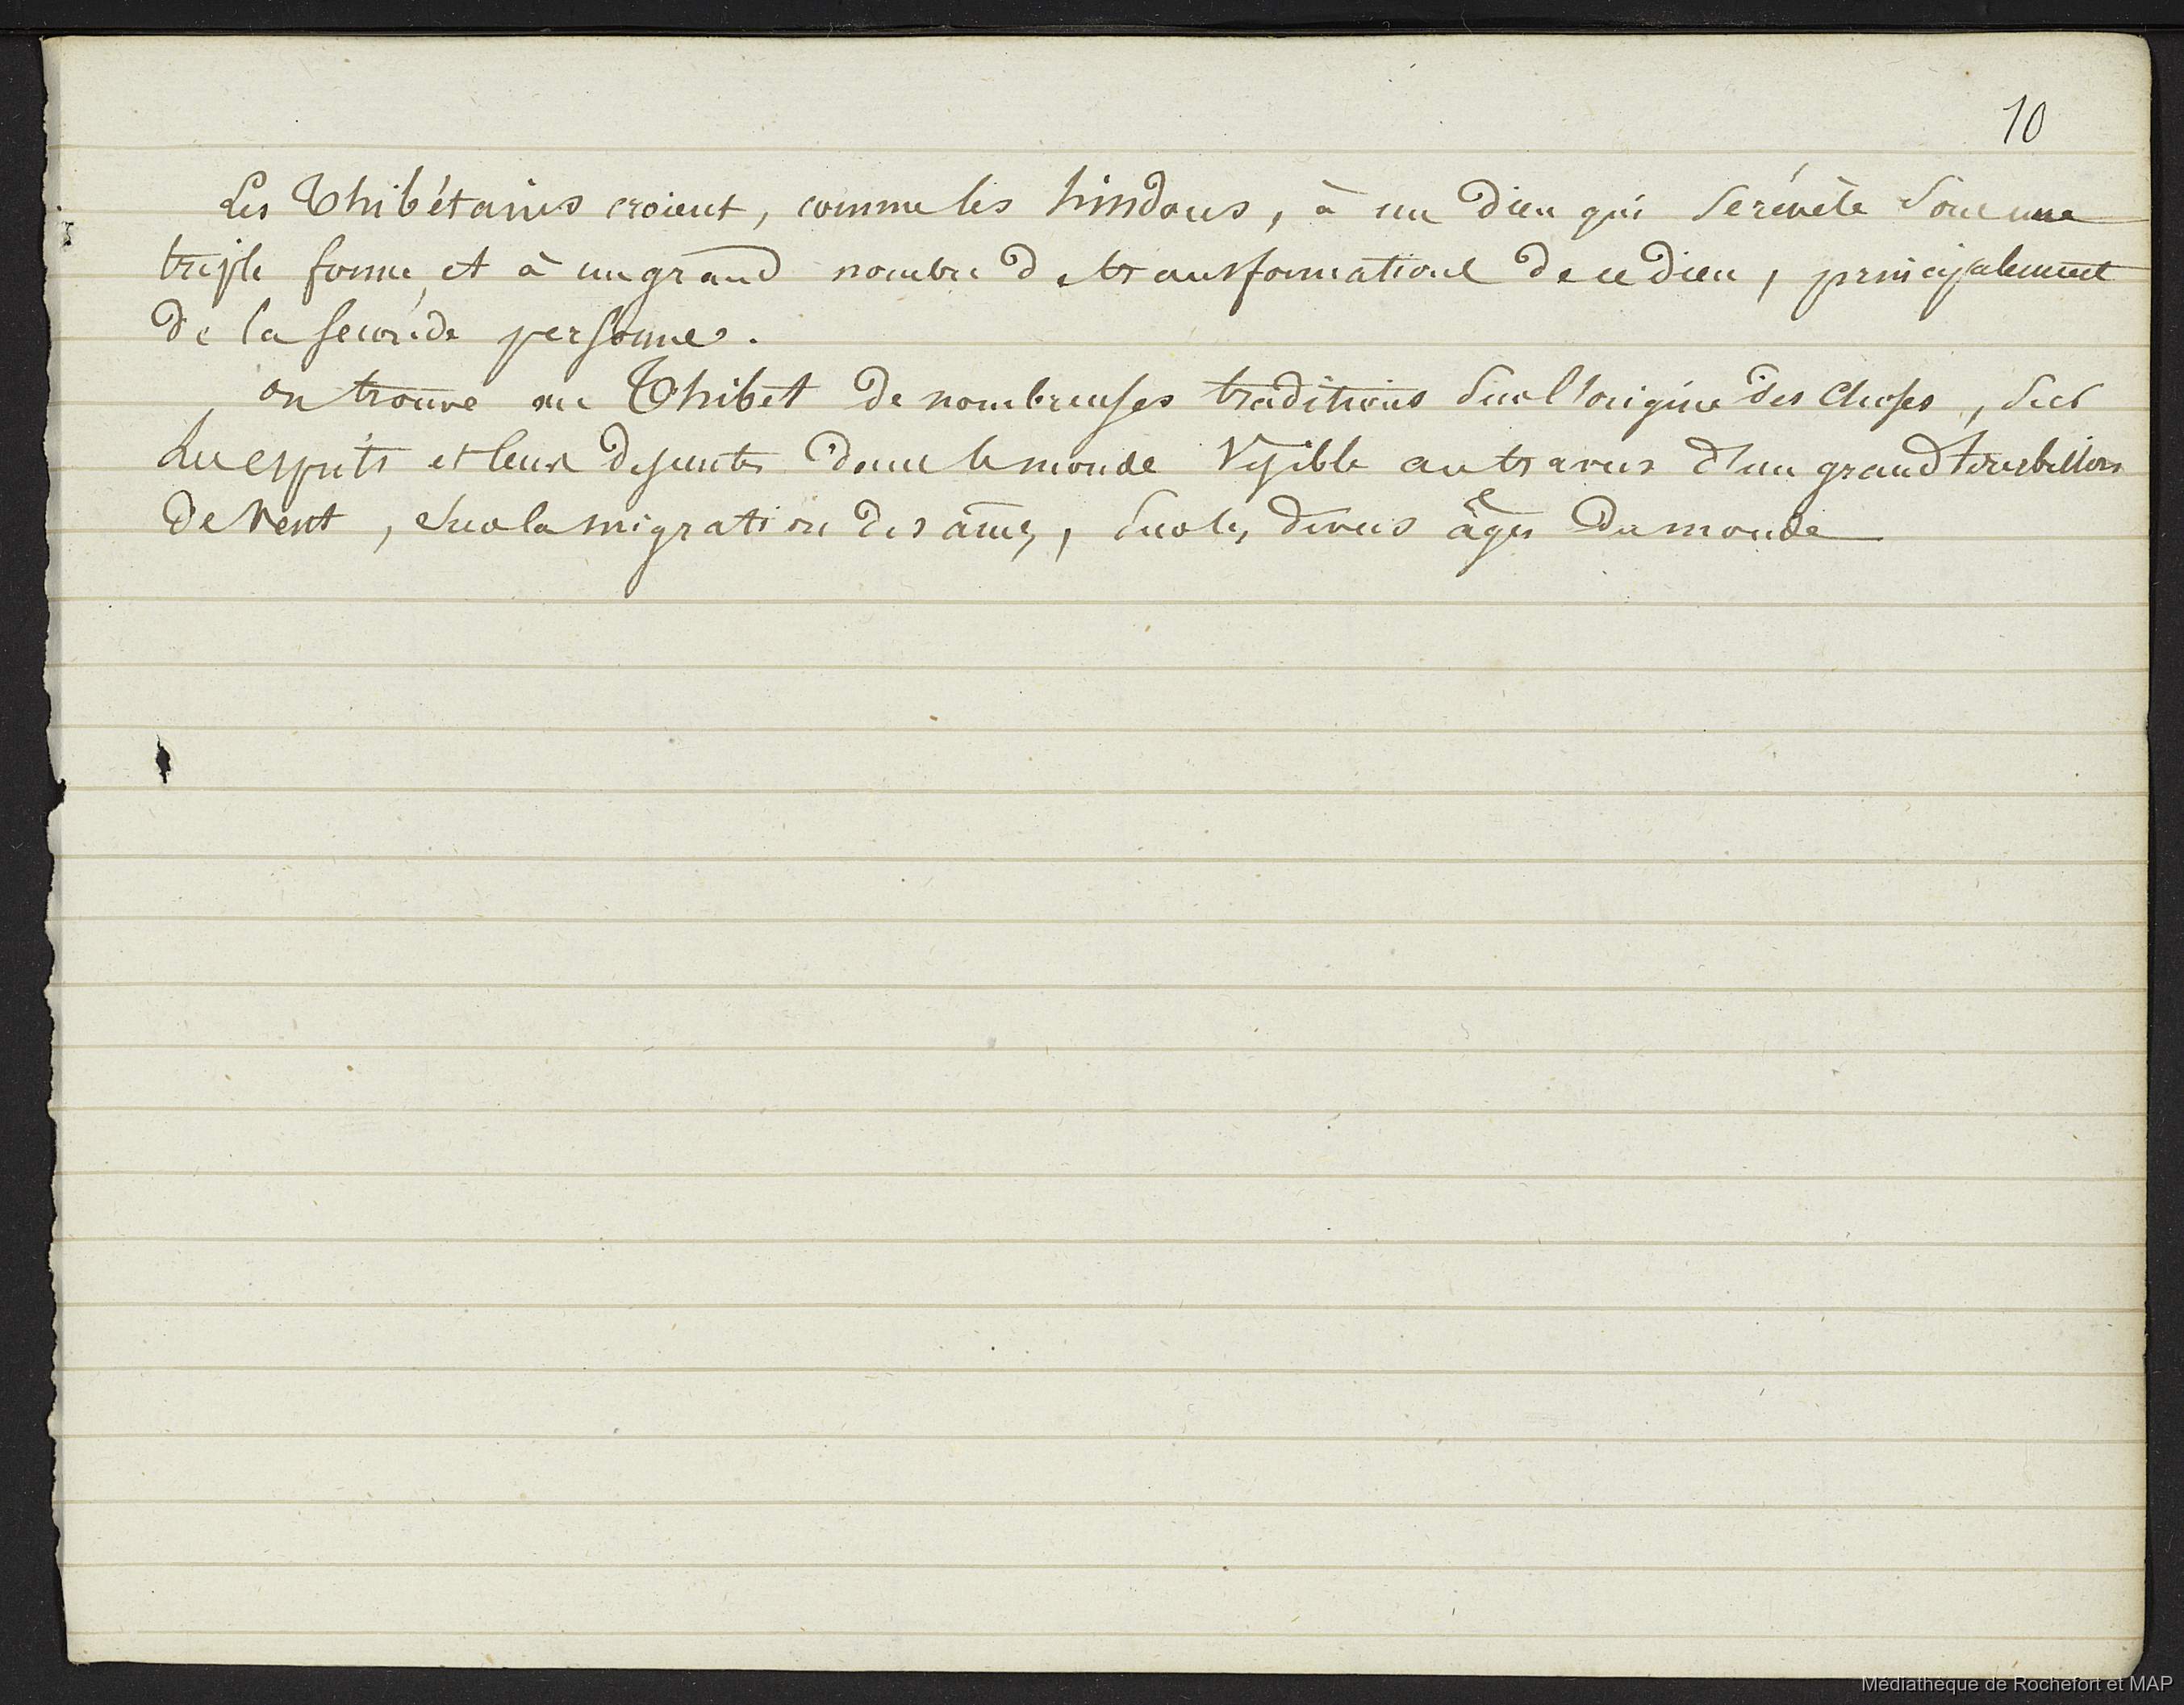 10
Les Thibétains croient, comme les hindous, à un Dieu qui se révèle sous une
triple forme, et à un grand nombre de transformations de ce Dieu, principalement
de la seconde personne.
on trouve au Thibet de nombreuses traditions sur l'origine des choses, sur
les esprits et leur descente dans le monde visible au travers d'un grand tourbillon
de vent, sur la migration des âmes, sur les divers âges du monde
Médiathèque de Rochefort et MAP